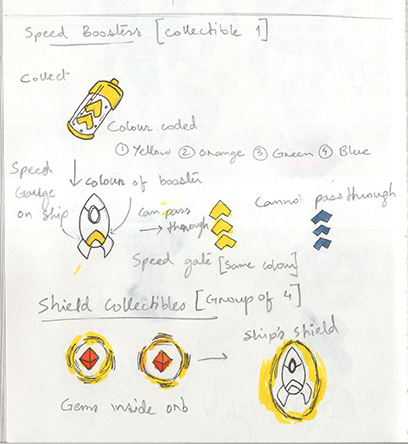 Speed Boosters [collectible 1]
Collect
Colour coded
① Yellow ② Orange ③ Green ④ Blue
Speed Gauge on ship
colour of booster
Can pass through
Cannot pass through
Speed gate [Same colour]
Shield Collectibles [Group of 4]
Ship's shield
Gems inside orb